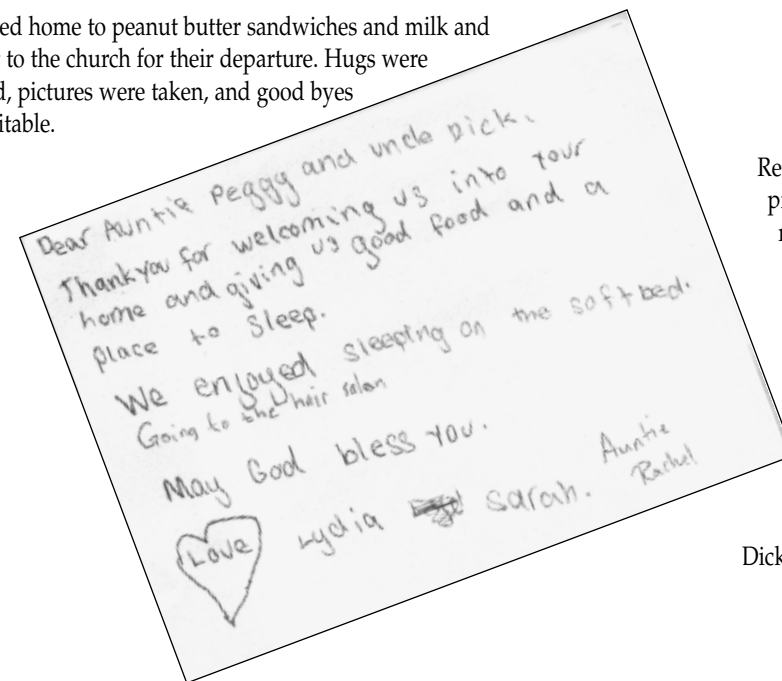 ed home to peanut butter sandwiches and milk and
to the church for their departure. Hugs were
d, pictures were taken, and good byes
itable.
Dear Auntie Peggy and uncle Dick,
Thankyou for welcoming us into your
home and giving us good food and a
place to sleep.
We enjoyed sleeping on the soft bed.
Going to the hair salon
May God bless you.
Love Lydia Sarah. Auntie
Rachel
Re
p
r
Dick